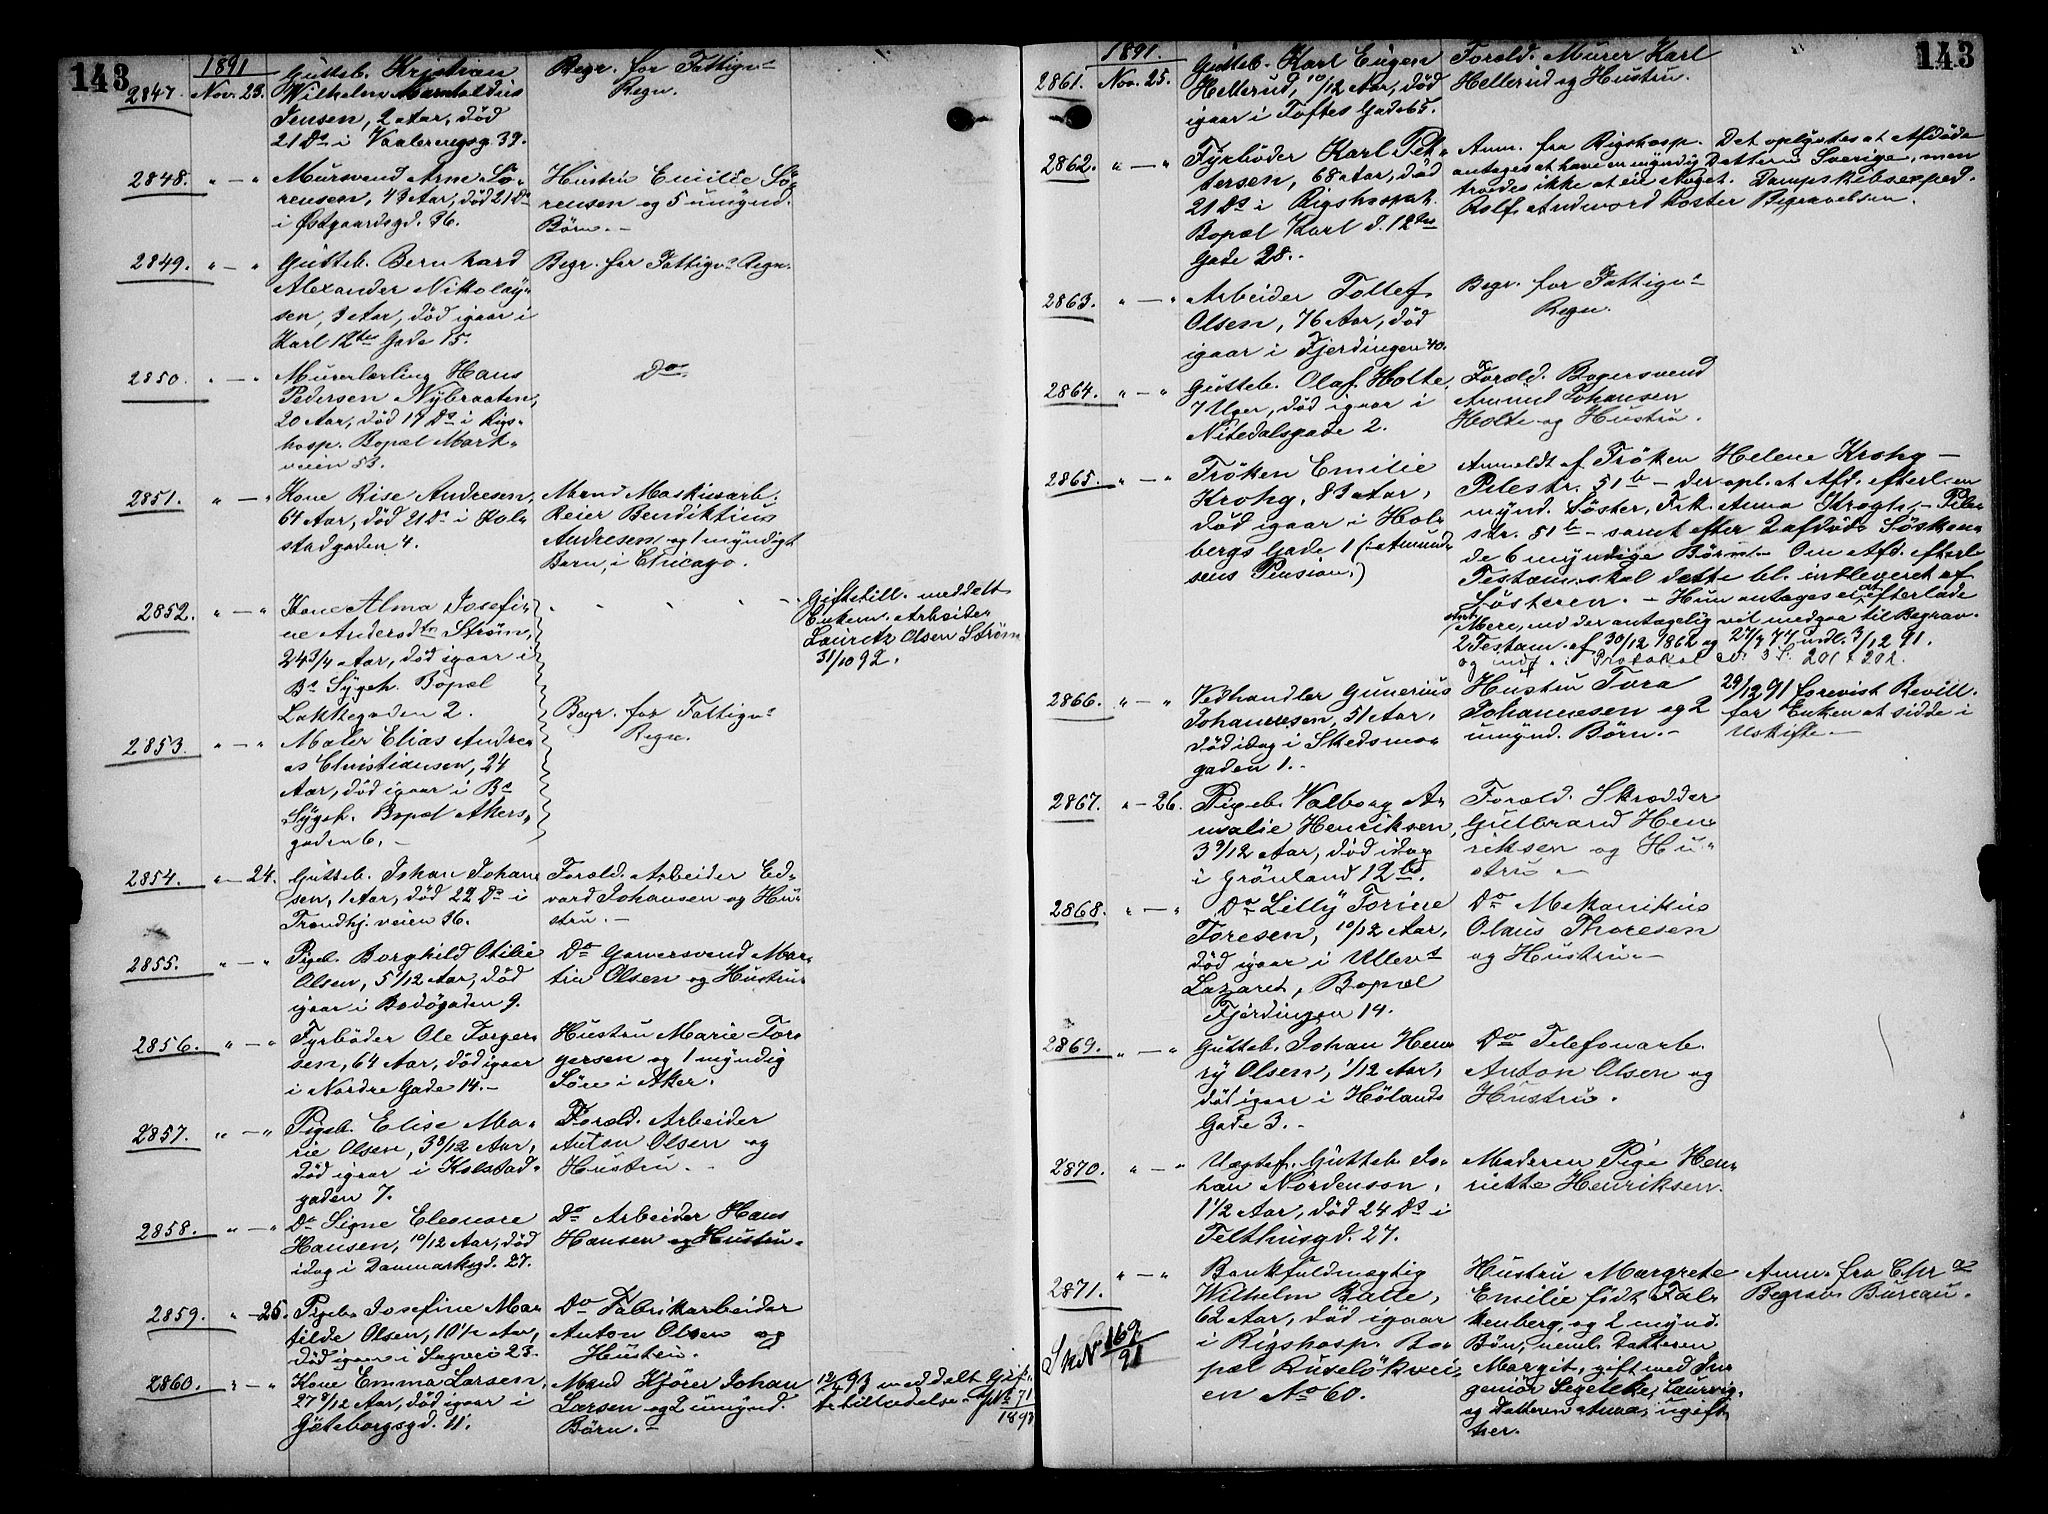 143
1891
2847. Nov. 23. Gutteb. Kristian
Wilhelm
Jensen, 2 Aar, død
21 Ds i Vaalerengsg. 39.
Begr. for Fattigv.s
Regn.
2848. " — " Mursvend Arne Sö-
rensen, 43 Aar, død 21 Ds
i Østgaardsgd. 26.
Hustru Emilie Sö-
rensen og 5 umynd.
Börn. -
2849. " — " Gutteb. Bernhard
Alexander Nikolay-
sen, 3 Aar, död igaar i
Karl 12tes Gade 15.
Begr. for Fattigv.s Regn.
2850. " — " Murerlærling Hans
Pedersen Nybraaten,
20 Aar, död 17 Ds i Rigs-
hosp. Bopæl Mark-
veien 53.
Do.
2851. " — " Kone Rise Andresen,
64 Aar, död 21 Ds i Kol-
stadgaden 4.
Mand Maskinarb.
Reier Bendiktius
Andresen og 1 myndigt
Barn, i Chicago.
2852. " — " Kone Alma Josefi-
ne Andersdtr Ström,
24 3/4 Aar, död igaar i
Bs Sygeh. Bopæl
Lakkegaden 2.
Giftetill. meddelt
Enkem. Arbeider
Lauritz Olsen Ström
31/10 92.
2853. " — " Maler Elias Andre-
as Christiansen, 24
Aar, död igaar i Bs
Sygeh. Bopæl Akers-
gaden 6. -
Begr. for Fattigv.s
Regn.
2854. " — 24. Gutteb. Johan Johan-
sen, 1 Aar, död 22 Ds i
Trondhj. veien 26.
Forold. Arbeider Ed-
vard Johansen og Hu-
stru. -
2855. " — " Pigeb. Borghild Otilie
Olsen, 5 1/12 Aar, död
igaar i Bodögaden 9.
Do Garversvend Mar-
tin Olsen og Hustru.
2856. " — " Fyrböder Ole Torger-
sen, 64 Aar, död igaar
i Nordre Gade 14. -
Hustru Marie Tor-
gersen og 1 myndig
Sön i Aker.
2857. " — " Pigeb. Elise Ma-
rie Olsen, 3 8/12 Aar,
död igaar i Kolstad-
gaden 7.
Forold. Arbeider
Anton Olsen og
Hustru. -
2858. " — " Do Signe Eleonore
Hansen, 10/12 Aar, död
idag i Danmarksgd. 27.
Do Arbeider Hans
Hansen og Hustru.
2859. " — 25. Pigeb. Josefine Ma-
tilde Olsen, 10 1/2 Aar,
död igaar i Sagvei 23.
Do Fabrikarbeider
Anton Olsen og
Hustru.
2860. " — " Kone Emma Larsen,
27 9/12 Aar, död igaar i
Göteborgsgd. 11.
Mand Kjörer Johan
Larsen og 2 umynd.
Börn. -
12/4 93 meddelt Gif-
tetilladelse. 71
1893
143
1891.
2861. Nov. 25. Gutteb. Karl Eugen
Hellerud, 10/12 Aar, död
igaar i Toftes Gade 65.
Forold. Murer Karl
Hellerud og Hustru.
2862. " — " Fyrböder Karl Pet-
tersen, 68 Aar, död
21 Ds i Rigshospit.
Bopæl Karl d. 12tes
Gade 28. -
Anm. fra Rigshosp. Det oplystes at Afdöde
antages at have en myndig Datter i Sverige, men
troedes ikke at eie Noget. Dampskibsexped.
Rolf Andvord koster Begravelsen.
2863. " — " Arbeider Tollef
Olsen, 76 Aar, död
igaar i Fjerdingen 40.
Begr. for Fattigv.s
Regn.
2864. " — " Gutteb. Olaf Holte,
7 Uger, död igaar i
Nitedalsgade 2.
Forold. Bagersvend
Amund Johansen
Holte og Hustru.
2865. " — " Fröken Emilie
Krohg, 83 Aar,
död igaar i Hol-
bergs Gade 1 (: Amund-
sens Pension.)
Anmeldt af Fröken Helene Krohg -
Pilestr. 51 b - der opl. at Afd. efterl. en
mynd. Söster, Frk. Anna Krogh, - Pile-
str. 51 b - samt efter 2 afdöde Sösken-
de 6 myndige Börn. - Om Afd. efterl.
Testam. skal dette bl. indleveret af
Sösteren. - Hun antages ei at efterlade
Mere, end der antagelig vil medgaa til Begrav.
2 Testam. af 30/12 1862 og 27/9 77 indl. 3/12 91.
og indf. i Protokol No 3 S. 201 & 202.
2866. " — " Vedhandler Gunerius
Johannesen, 51 Aar,
död idag i Skedsmo-
gaden 1. -
Hustru Tora
Johannesen og 2
umynd. Börn. -
29/12 91 forevist Bevill.
for Enken at sidde i
Uskifte. -
2867. " — 26. Pigeb. Valborg A-
malie Henriksen,
3 9/12 Aar, död idag
i Grönland 12 b.
Forold. Skrædder
Gulbrand Hen-
riksen og Hu-
stru. -
2868. " — " Do Lilly Torine
Toresen, 10/12 Aar,
död igaar i Ullev.s
Lazaret, Bopæl
Fjerdingen 14.
Do Mekanikus
Olaus Thoresen
og Hustru. -
2869. " — " Gutteb. Johan Hen-
ry Olsen, 1/12 Aar,
död igaar i Hölands
Gade 3. -
Do Telefonarb.
Anton Olsen og
Hustru.
2870. " — " Uægtef. Gutteb. Jo-
han Nordenson,
1 1/2 Aar, död 24 Ds i
Felthusgd. 27.
Moderen Pige Hen-
riette Henriksen.
2871. " — " Bankfuldmægtig
Wilhelm Balle,
62 Aar, död igaar
i Rigshosp. Bo-
pæl Ruselökvei-
en No 60.
Sk No 169/91
Hustru Margrete
Emilie födt Fal-
kenberg, og 2 mynd.
Börn, neml. Datteren
Margit, gift med In-
geniör Segelcke, Laurvig,
og Datteren Anna, ugift,
her.
Anm. fra Chr.as
Begrav. Bureau.